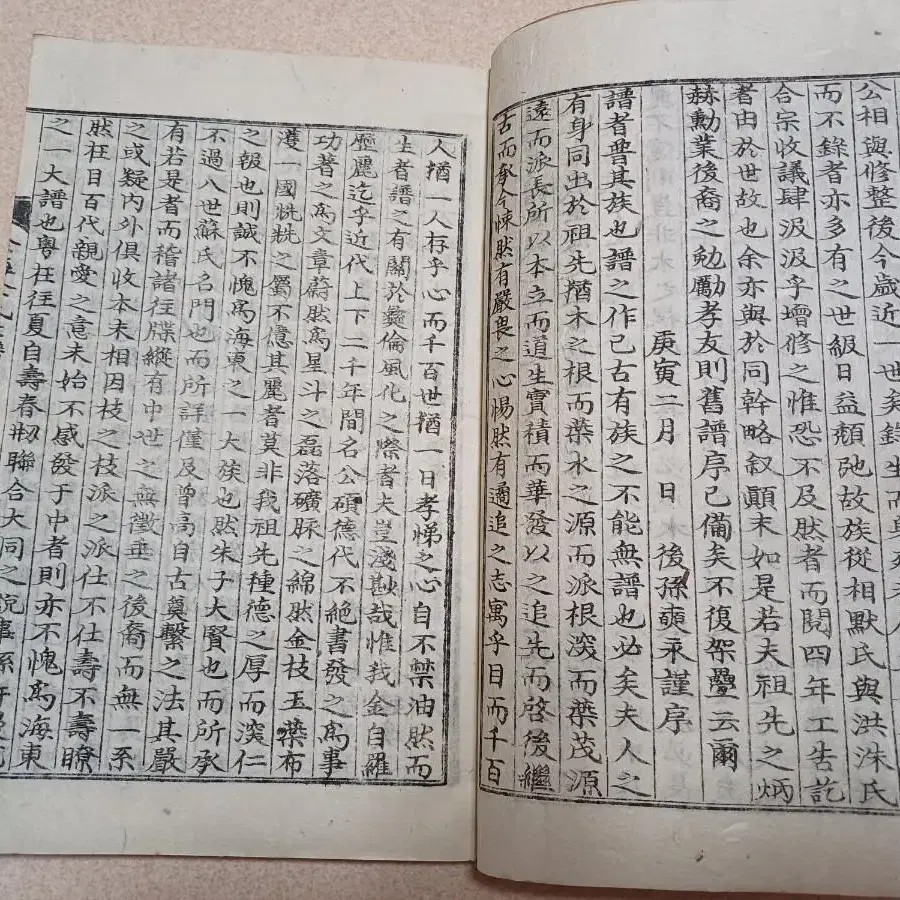 公相與修整後今歲近一世矣錄生而
而不錄者亦多有之世級日益頹弛故族從相默氏與洪洙氏
合宗收議肆汲汲乎增修之惟恐不及然者而閱四年工告訖
者由於世故也余亦與於同幹略叙顚末如是若夫祖先之炳
赫勳業後裔之勉勵孝友則舊譜序已備矣不復架疊云爾
庚寅二月 日水後孫 永謹序
譜者普其族也譜之作已古有族之不能無譜也必矣夫人之
有身同出於祖先猶木之根而葉水之源而派根深而葉茂源
遠而派長所以本立而道生實積而華發以之追先而啓後繼
古而承今悚然有嚴畏之心惕然有遹追之志寓乎目而千百
人猶一人存乎心而千百世猶一日孝悌之心自不禁油然而
生者譜之有關於彝倫風化之際者夫豈淺尠哉惟我金自羅
歷麗迄乎近代上下二千年間名公碩德代不絶書發之爲事
功著之爲文章蔚然爲星斗之磊落礦脎之綿然金枝玉葉布
濩一國兟兟之屬不億其麗者莫非我祖先種德之厚而深仁
之報也則誠不愧爲海東之一大族也然朱子大賢也而所承
不過八世蘇氏名門也而所詳僅及曾高自古奠繫之法其嚴
有若是者而稽諸往牒縱有中世之無徵垂之後裔而無一系
之或疑內外俱收本末相因枝之枝派之派仕不仕壽不壽瞭
然在目百代親愛之意未始不感發于中者則亦不愧爲海東
之一大譜也粤在往夏自壽春刱聯合大同之